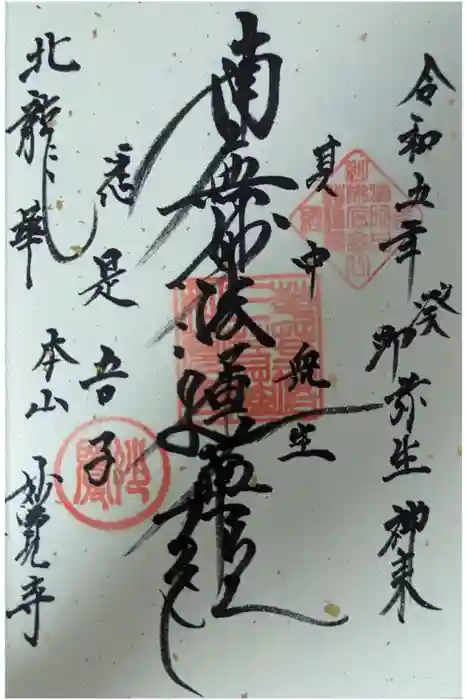 令和五年 癸卯 弥生
其中衆生
南無妙法蓮華経
悉是吾子
北龍華 本山 妙覺寺